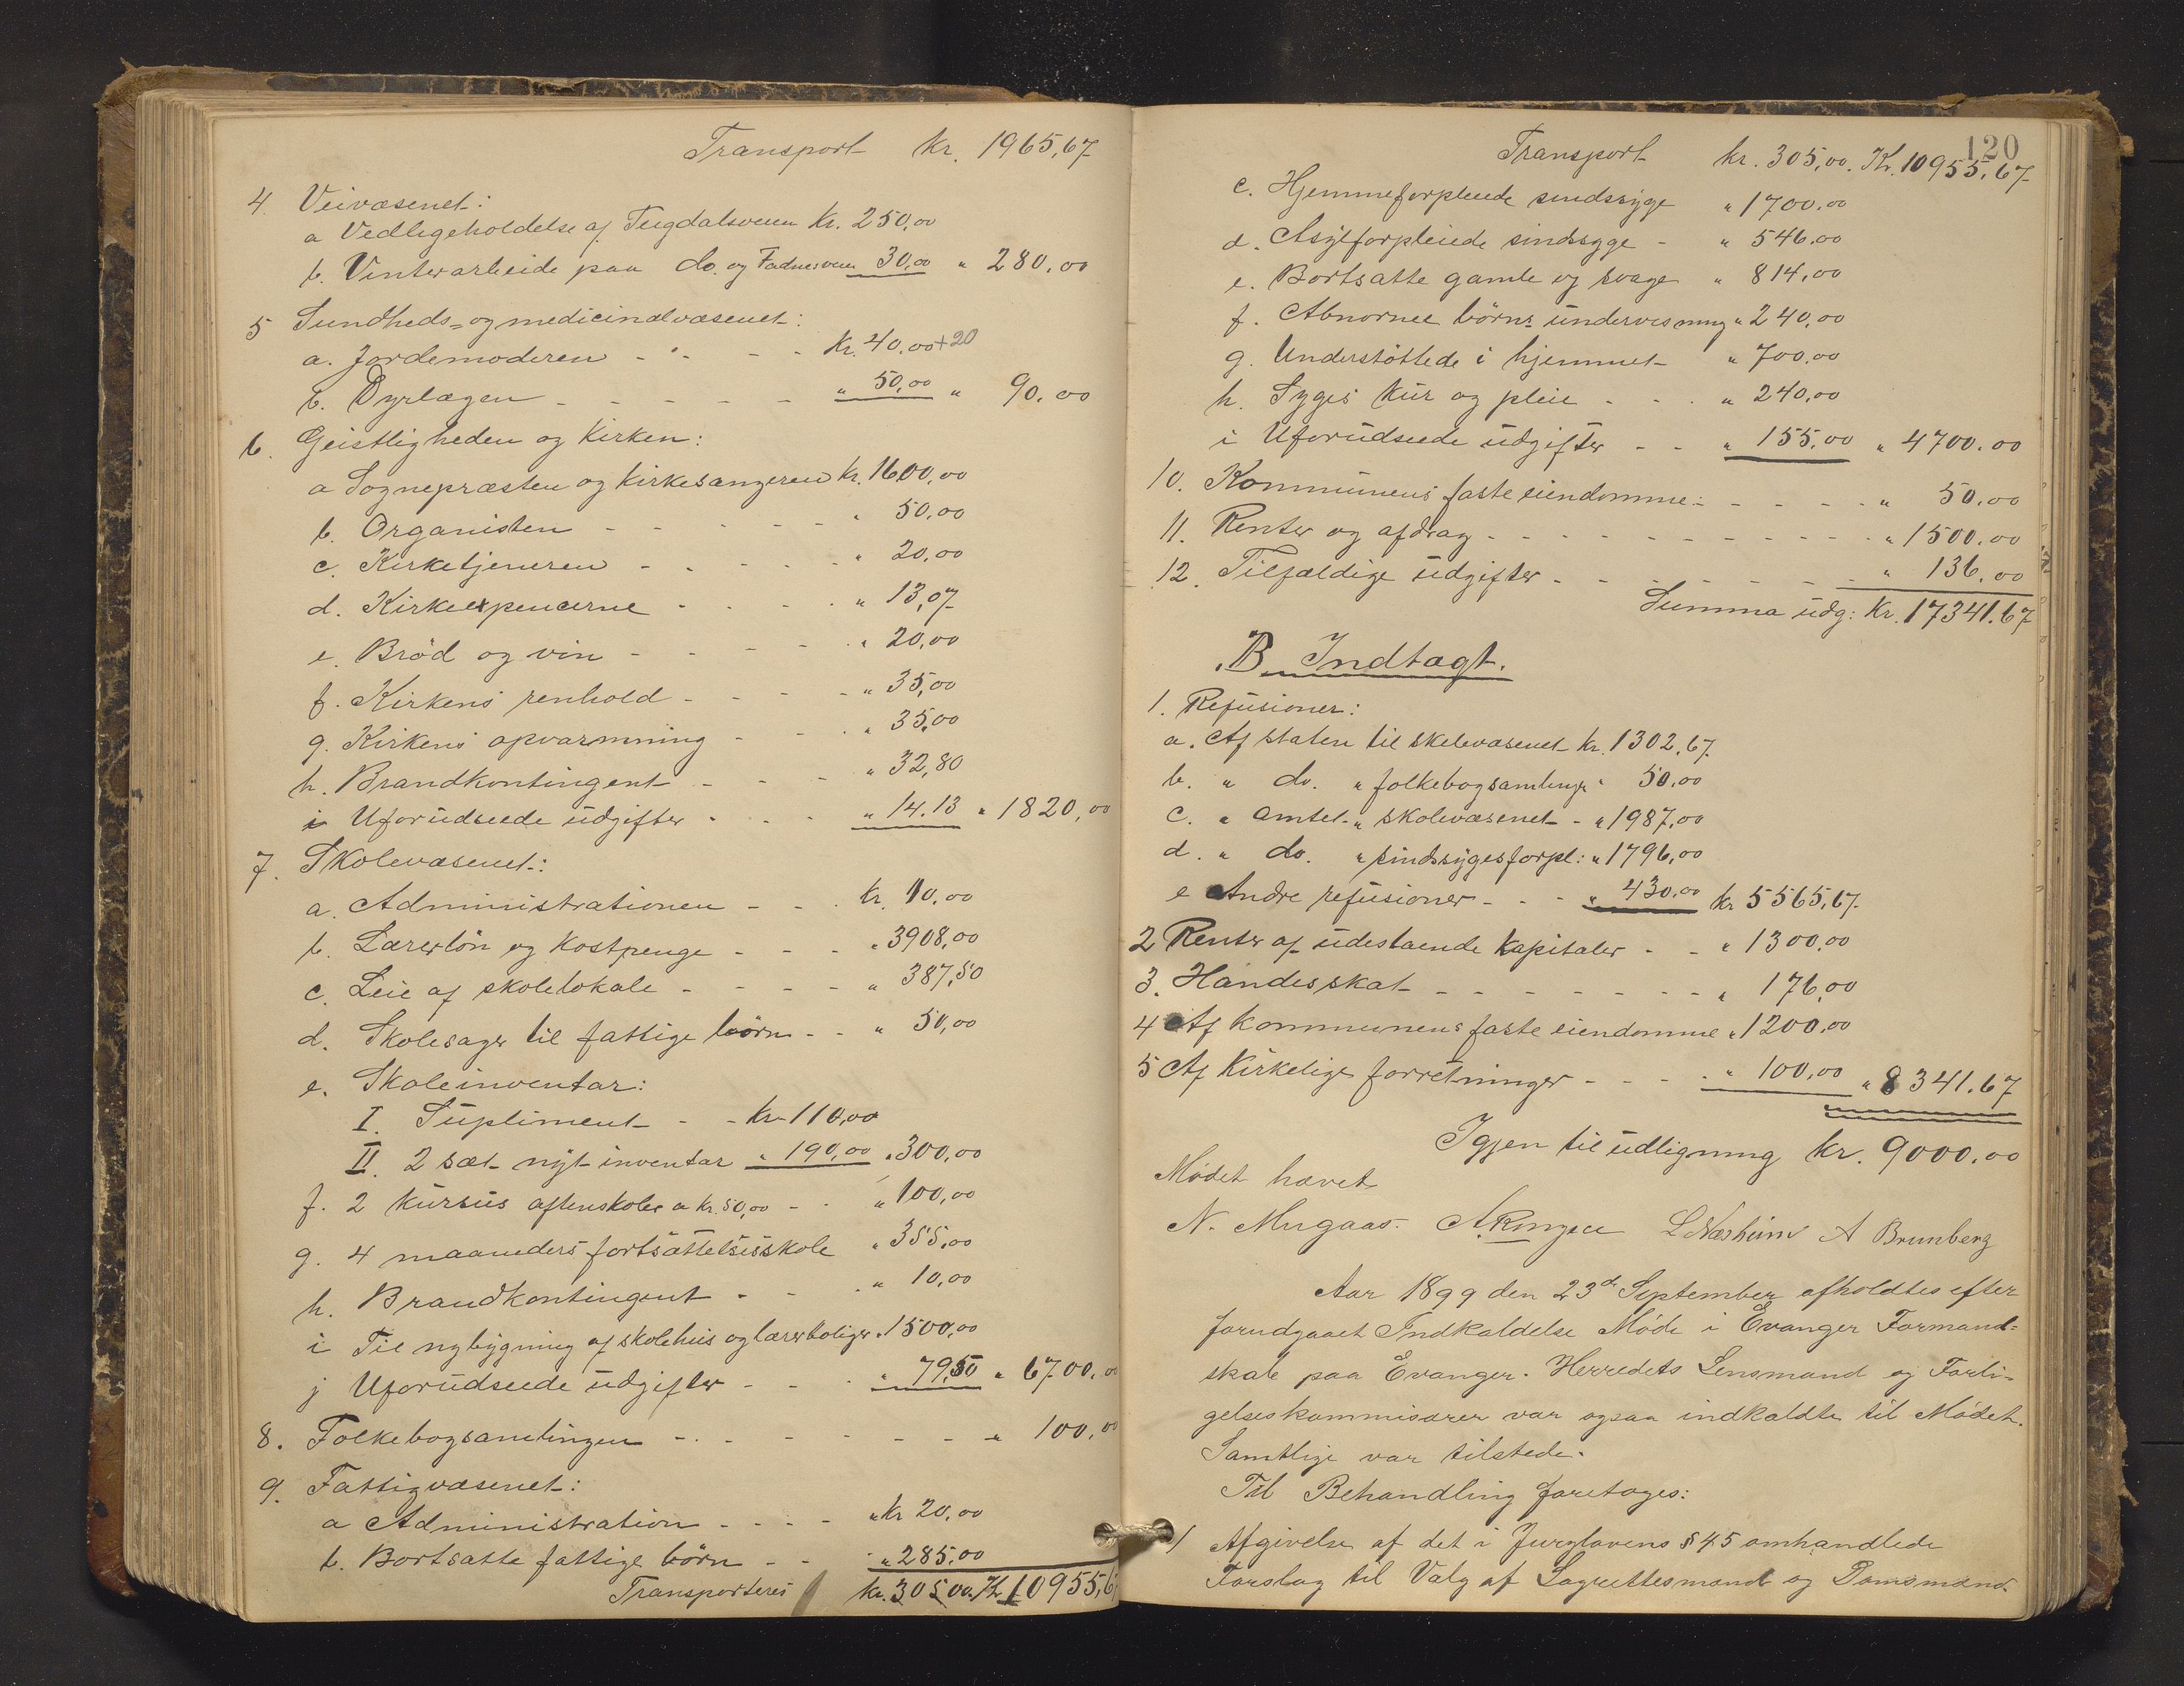 Transport kr. 1965,67
4. Veivæsenet:
a Vedligeholdelse af Teigdalsveien Kr. 250,00
b. Vinterarbeide paa do. og Fadnesveien 30,00 " 280,00
5 Sundheds- og medicinalvæsenet:
a. Jordemoderen - - - - Kr. 40,00 +20
b. Dyrlægen - - - - - " 50,00 " 90,00
6. Geistligheden og Kirken:
a Sognepræsten og kirkesangeren Kr. 1600,00
b. Organisten - - - - - " 50,00
c. Kirketjeneren - - - - - " 20,00
d. Kirkeexpencerne - - - - " 13,07
e. Brød og vin - - - - - " 20,00
f. Kirkens renhold - - - - " 35,00
g. Kirkens opvarmning - - - " 35,00
h. Brandkontingent - - - " 32,80
i Uforudseede udgifter - - - " 14.13 " 1820,00
7. Skolevæsenet:
a. Administrationen - - - Kr. 10,00
b. Lærerløn og Kostpenge - - - " 3908,00
c. Leie af skolelokale - - - - " 387,50
d. Skolesager til fattige børn - - " 50,00
e. Skoleinventar:
I. Supliment - - kr 110,00
II. 2 sæt nyt inventar " 190,00 " 300,00
f. 2 kursus aftenskoler a kr. 50,00 - - " 100,00
g. 4 maaneders fortsættelsesskole " 355,00
h. Brandkontingent - - - " 10,00
i Til nybygning af skolehus og lærerboliger " 1500,00
j Uforudseede udgifter - - - " 79,50 " 6700,00
8. Folkebogsamlingen - - - - - - " 100,00
9. Fattigvæsenet:
a Administration - - - - " Kr 20,00
b. Bortsatte fattige børn - - " 285,00
Transporteres Kr. 305,00. Kr. 10955,67
120
Transport kr. 305,00. Kr. 10955,67
c. Hjemmeforpleiede sindssyge " 1700,00
d. Asylforpleiede sindssyge - " 546,00
e. Bortsatte gamle og svage " 814,00
f. Abnorme børns undervisning " 240,00
g. Understøttede i hjemmet " 700,00
h. Syges kur og pleie - - - " 240,00
i Uforudseede udgifter - - " 155,00 " 4700.00
10. Kommunens faste eiendomme: - - - - - " 50,00
11. Renter og afdrag - - - - - - - - - - " 1500,00
12. Tilfældige udgifter - - - - - - - - " 136,00
Summa udg: Kr. 17341.67
B. Indtægt.
1. Refusioner:
a. Af staten til skolevæsenet kr. 1302,67
b. " do. " folkebogsamlinger " 50,00
c. " amtet " skolevæsenet - " 1987,00
d. " do. " sindssygesforpl: " 1796,00
e Andre refusioner - - - " 430,00 kr 5565,67
2 Renter af udestaaende kapitaler - - " 1300,00
3. Hundeskat - - - - - - - - " 176,00
4 Af kommunens faste eiendomme " 1200,00
5 Af Kirkelige forretninger - - - - " 100,00 " 8341.67
Igjen til udligning kr. 9000,00
Mødet hævet
N. Mugaas. A. Ringen L Næsheim A Brunberg
Aar 1899 den 23de September afholdtes efter
forudgaaet Indkaldelse Møde i Evanger Formand-
skab paa Evanger. Herredets Lensmand og Forli-
gelseskommisærer var ogsaa indkaldte til Mødet.
Samtlige var tilstede.
Til Behandling foretoges:
1/ Afgivelse af det i Jurylovens § 45 omhandlede
Forslag til Valg af Lagrettesmænd og Domsmænd.